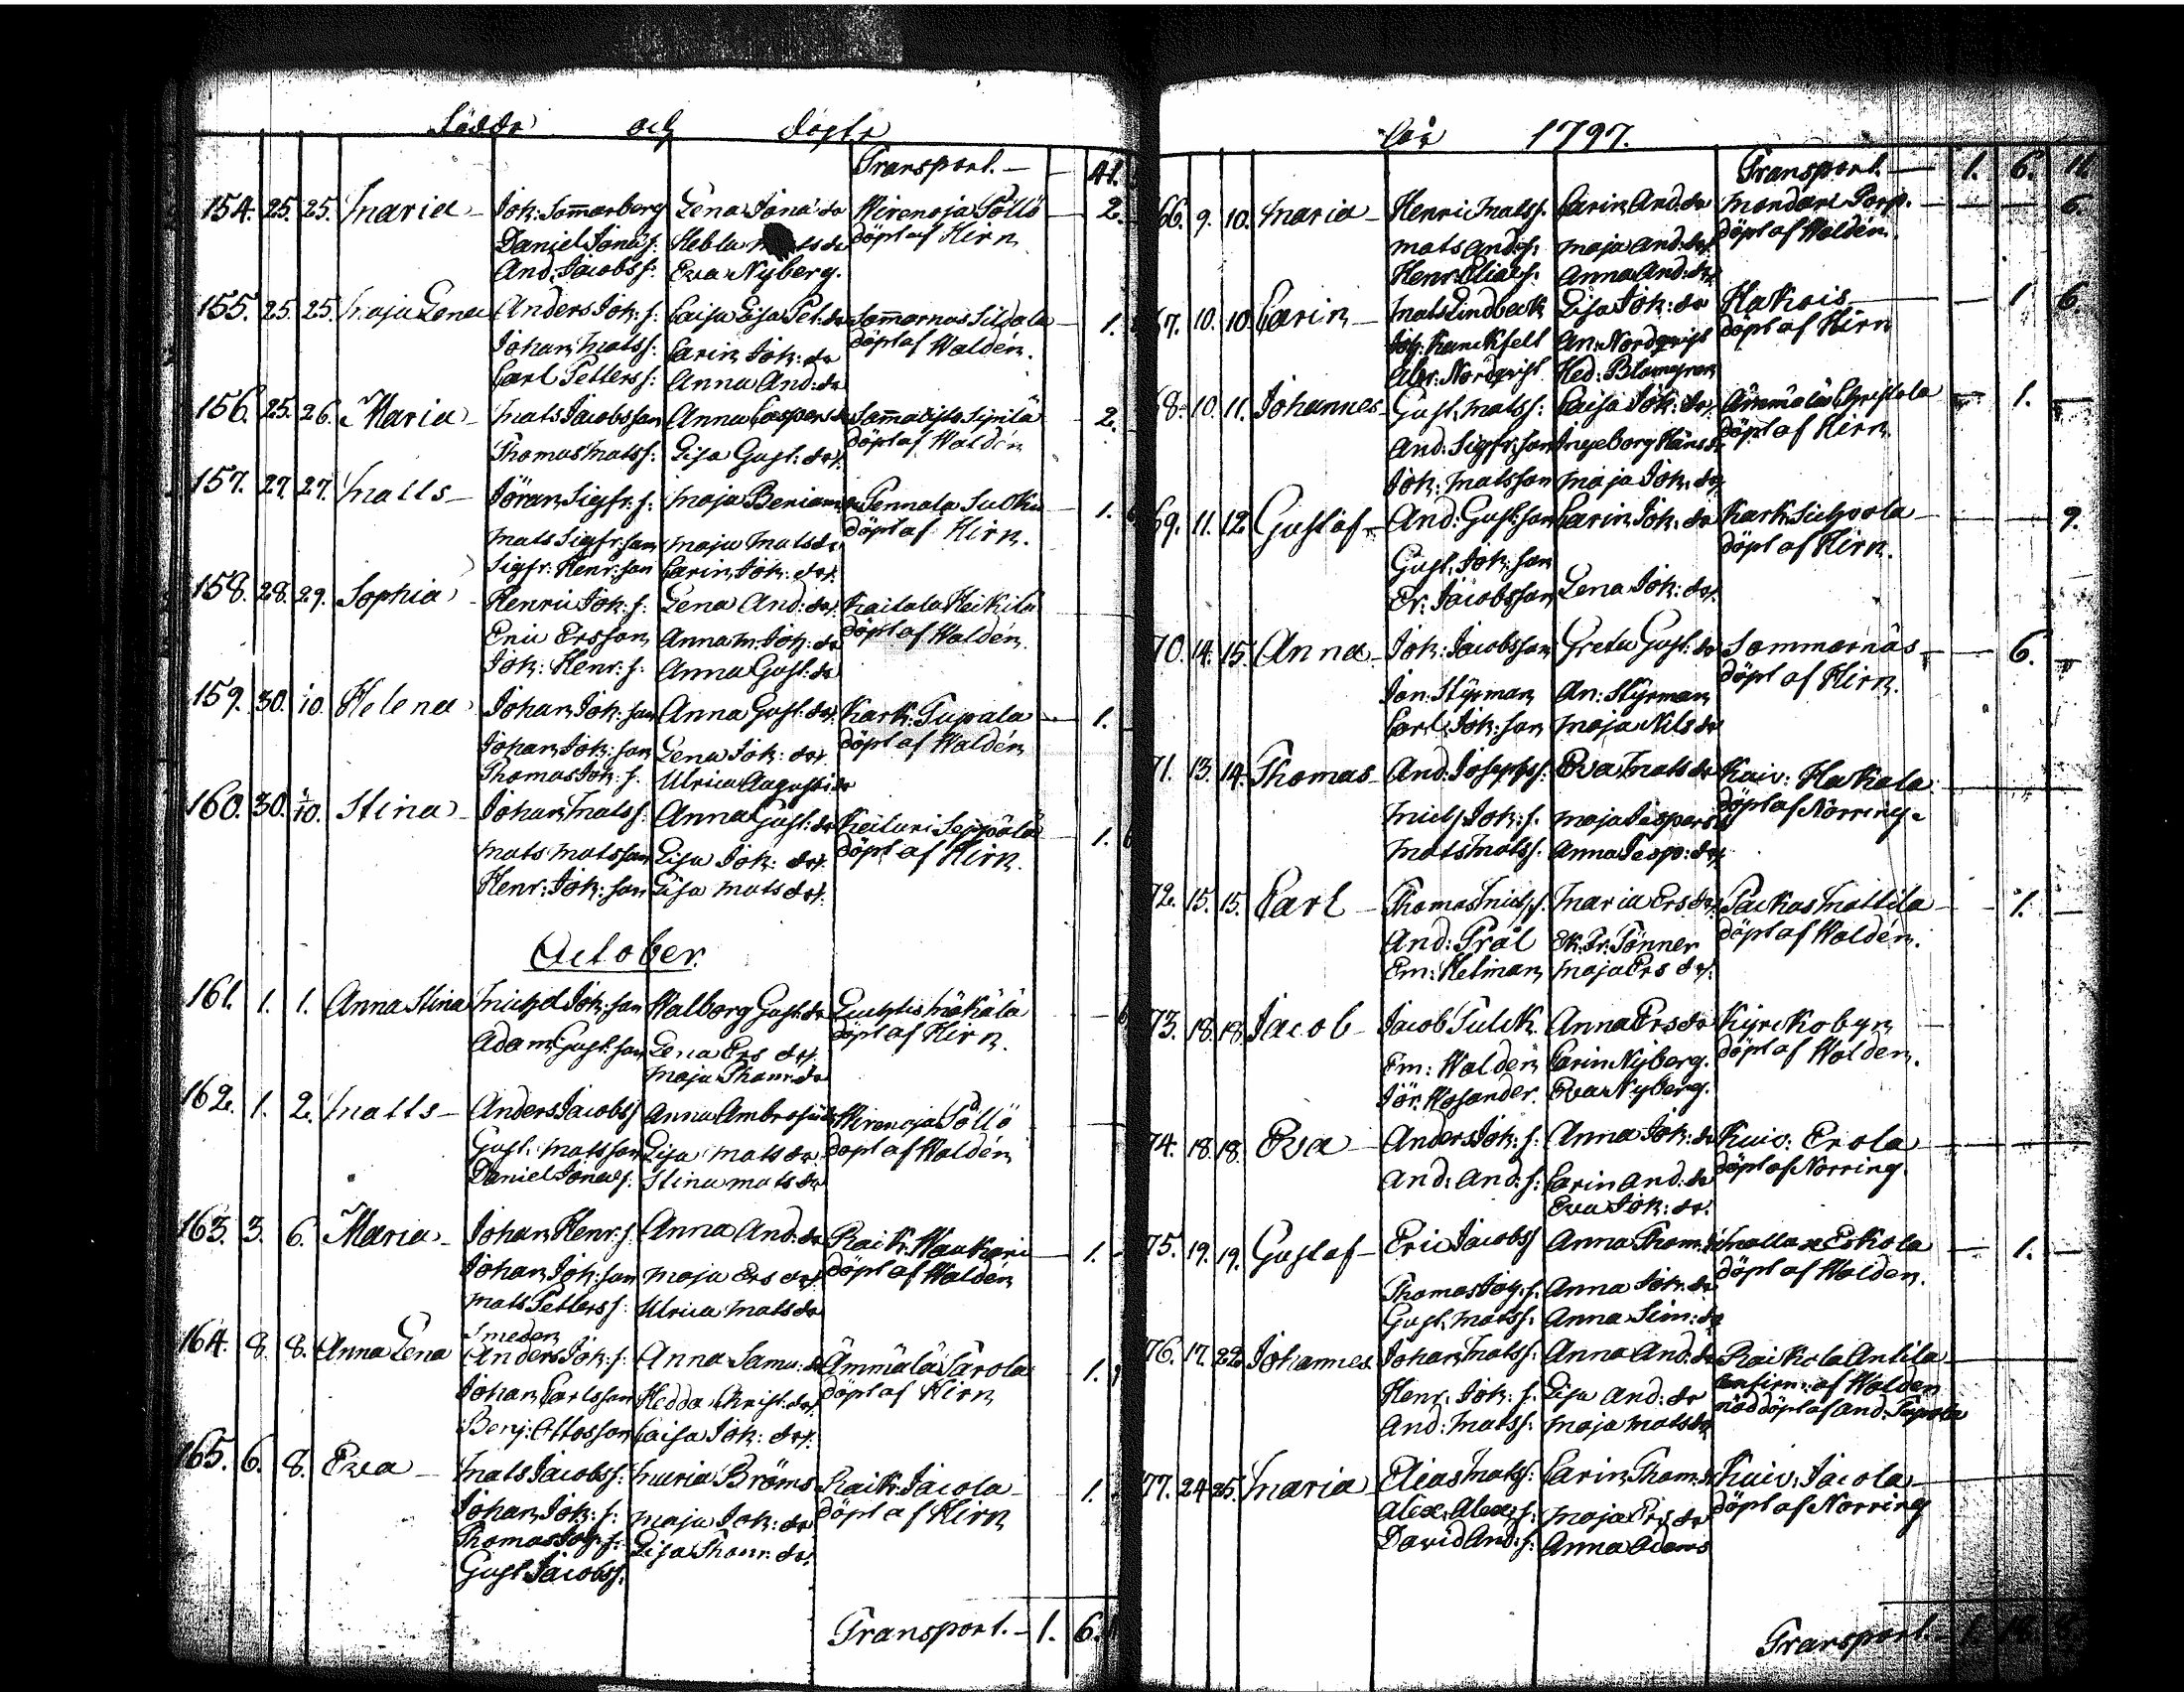 Födde och döpte
Transport. — 41.
154. 25. 25. Maria — Joh: Sommarberg Lena Jona dr Wirenoja Töllö — 2.
Daniel Jonas s: Hebla döpt af Hirn
And: Jacobs s: Eva Nyberg.
155. 25. 25. Maja Lena Anders Joh: s: Caisa Lisa Pet: dr Sommarnas Sildala — 1.
Johan Mats s: Carin Joh: dr döpt af Waldén.
Carl Petters s: Anna And: dr
156. 25. 26. Maria — Mats Jacobsson Anna Caspers dr Sipilä — 2.
Thomas Mats s: Lisa Gust: dr döpt af Waldén
157. 27. 27. Matts — Jöran Sigfr: s: Maja Beniam Pennala Sulku — 1.
Mats Sigfr: son Maja Mats dr döpt af Hirn.
Sigfr: Henr: son Carin Joh: dr
158. 28. 29. Sophia — Henric Joh: s: Lena And: dr Kaitala Heikilä
Eric Ersson Anna M. Joh: dr döpt af Waldén.
Joh: Henr: s: Anna Gust: dr
159. 30. 1/10. Helena Johan Joh: son Anna Gust: dr Kark: Tupala — 1.
Johan Joh: son Lena Joh: dr döpt af Waldén
Thomas Joh: s. Ulrica Augusti dr
160. 30. 1/10. Stina — Johan Mats s: Anna Gust: dr Keituri Seppälä — 1. 6
Mats Matsson Lisa Joh: dr döpt af Hirn.
Henr: Joh: son Lisa Mats dr
October.
161. 1. 1. Anna Stina Michel Joh: son Walborg Gust: dr Luhtis Mäkälä — 6
Adam Gust: son Lena Ers dr döpt af Hirn.
Maja Thom: dr
162. 1. 2. Matts — Anders Jacobs s Anna Ambrosii dr Wirenoja Töllö
Gust: Matsson Lisa Mats dr döpt af Waldén
Daniel Jonas s: Stina Mats dr
163. 3. 6. Maria — Johan Henr: s. Anna And: dr Raik: Haukari — 1.
Johan Joh: son Maja Ers dr döpt af Waldén
Mats Petters s: Ulrica Mats dr
Smeden
164. 8. 8. Anna Lena Anders Joh: s: Anna Samu: dr Ämmälä Sarola — 1.
Johan Carlsson Hedda Christ: dr döpt af Hirn
Benj: Ottosson Caisa Joh: dr
165. 6. 8. Eva — Mats Jacobs s: Maria Bröms Raik: Jacola — 1.
Johan Joh: s: Maja Joh: dr döpt af Hirn
Thomas Joh: s: Lisa Thom: dr
Gust: Jacobs s:
Transport. — 1. 6.
för 1797.
Transport. — 1. 6. 11
66. 9. 10. Maria — Henric Mats s. Carin And: dr Mondarl Torp. — 6.
Mats And: s: Maja And: dr döpt af Waldén.
Henr: Elias s: Anna And: dr
67. 10. 10. Carin — Mats Lindbeck Lisa Joh: dr Hakois — 1 6.
Joh: Hanckfelt An: Nordqvist döpt af Hirn
Abr: Nordqvist Hed: Blomgren
68. 10. 11. Johannes — Gust: Mats s: Caisa Joh: dr Ämmälä — 1. —
And: Sigfr: son Ingeborg Hans dr döpt af Hirn.
Joh: Matsson Maja Joh: dr
69. 11. 12. Gustaf — And: Gust: son Carin Joh: dr Kark: Suhvola — 9.
Gust: Joh: son döpt af Hirn.
Er: Jacobsson Lena Joh: dr
70. 14. 15. Anna — Joh: Jacobsson Greta Gust: dr Sommarnäs — 6. —
Jon: Styrman An: Styrman döpt af Hirn.
Carl Joh: son Maja Nils dr
71. 13. 14. Thomas — And: Josephs s: Eva Mats dr Kuiv: Hakala
Mich: Joh: s. Maja Jespers dr döpt af Norring.
Mats Mats s. Anna Jesp: dr
72. 15. 15. Carl — Thomas Mich: s. Maria Ers dr Packas Mattila — 1. —
And: Prål Ek. Fr: Tönner döpt af Waldén.
Em: Helman Maja Ers dr
73. 18. 18. Jacob — Jacob Tulck Anna Ers dr Kyrckobyn —
Em: Waldén Carin Nyberg. döpt af Waldén.
Jör: Wosander. Eva Nyberg.
74. 18. 18. Eva — Anders Joh: s: Anna Joh: dr Kuiv: Erola
And: And: s: Carin And: dr döpt af Norring.
Eva Joh: dr
75. 19. 19. Gustaf — Eric Jacobs s Anna Thom: dr Mallan Eskola — 1. —
Thomas Joh: s. Anna Joh: dr döpt af Walden.
Gust: Mats s. Anna Sim: dr
76. 17. 22. Johannes Johan Mats s: Anna And: dr Raikola Antila
Henr: Joh: s. Lisa And: dr confirm: af Walden
And: Mats s: Maja Mats dr nöddöpt af And: Tupola
77. 24 25. Maria — Elias Mats s: Carin Thom: dr Kuiv: Jacola
Alex: Alex: s: Maja Ers dr döpt af Norring
David And: s: Anna Adams
Transport. — 1.